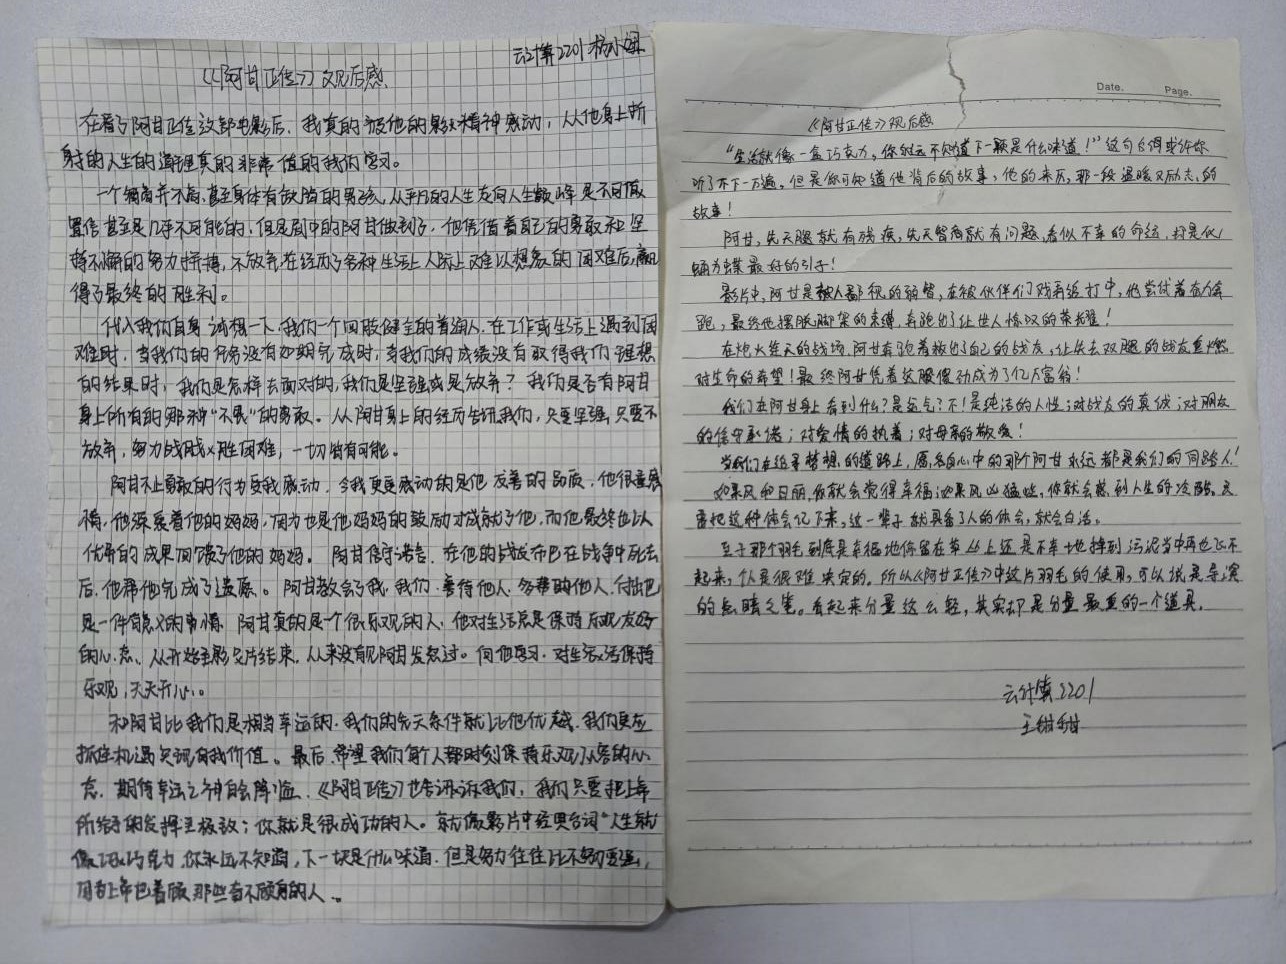 云计算2201 杨小
《阿甘正传》观后感
在看了阿甘正传这部电影后，我真的被他的影片精神感动，从他身上所
射的人生的道理真的非常值的我们学习。
一个智商并不高，甚至身体有缺陷的男孩，从平凡的人生走向人生巅峰是不可
置信甚至是几乎不可能的，但是剧中的阿甘做到了，他凭借着自己的勇敢和坚
持不懈的努力拼搏，不放弃在经历了各种生活上人际上难以想象的困难后，赢
得了最终的胜利。
代入我们自身试想一下，我们一个四肢健全的普通人，在工作或生活上遇到困
难时，当我们的任务没有如期完成时，当我们的成绩没有取得我们理想
的结果时，我们是怎样去面对的，我们是坚强或是放弃？我们是否有阿甘
身上所有的那种“不畏”的勇敢。从阿甘身上的经历告诉我们，只要坚强，只要不
放弃，努力战胜困难，一切皆有可能。
阿甘不止勇敢的行为受我感动，令我更更感动的是他友善的品质，他很重感
情，他深爱着他的妈妈，因为也是他妈妈的鼓励才成就了他，而他最终也以
优秀的成果回馈了他的妈妈。阿甘信守诺言，在他的战友布巴在战争中死去
后，他帮他完成了遗愿。阿甘教会了我，我们，善待他人，多帮助他人，付出也
是一件有意义的事情，阿甘真的是个很乐观的人，他对生活总是保持乐观友好
的心态，从开始至影片结束，从来没有见阿甘发怒过。向他学习，对生活保持
乐观，天天开心。
和阿甘比我们是相当幸运的，我们的先天条件就比他优越，我们更应
抓住机遇实现自我价值。最后，希望我们每个人都时刻保持乐观从容的心
态，期待幸运之神自会降临，《阿甘正传》也告诉我们，我们只要把上帝
所给予的发挥至极致；你就是很成功的人。就像影片中经典台词“人生就
像巧克力，你永远不知道，下一块是什么味道，但是努力往往比不努力更强，
因为上帝也眷顾那些奋不顾身的人。
Date. Page.
《阿甘正传》观后感
“生活就像一盒巧克力，你永远不知道下一颗是什么味道！”这句台词或许你
听了不下一万遍，但是你可知道他背后的故事，他的来历，那一段温暖又励志，的
故事！
阿甘，先天腿就有残疾，先天智商就有问题，看似不幸的命运，却是化
蛹为蝶最好的引子！
影片中，阿甘是被人鄙视的弱智，在被伙伴们戏弄追打中，他尝试着奋力奔
跑，最终他摆脱脚架的束缚，奔跑出了让世人惊叹的荣耀！
在炮火连天的战场，阿甘奔跑着救出了自己的战友，让失去双腿的战友重燃
对生命的希望！最终阿甘凭着这股傻劲成为了亿万富翁！
我们在阿甘身上看到什么？是运气？不！是纯洁的人性；对战友的真诚；对朋友
的信守承诺；对爱情的执着；对母亲的敬爱！
当我们在追寻梦想的道路上，愿各自心中的那个阿甘永远都是我们的同路人！
如果风和日丽，你就会觉得幸福；如果风凶猛，你就会感到人生的冷酷。
要把这种体会记下来，这一辈子就具备了人的体会，就会白活。
至于那个羽毛到底是幸福地停留在草丛上还是不幸地掉到污泥当中再也飞不
起来，个人是很难决定的。所以《阿甘正传》中这片羽毛的使用，可以说是导演
的点睛之笔。看起来分量这么轻，其实却是分量最重的一个道具。
云计算2201
王甜甜